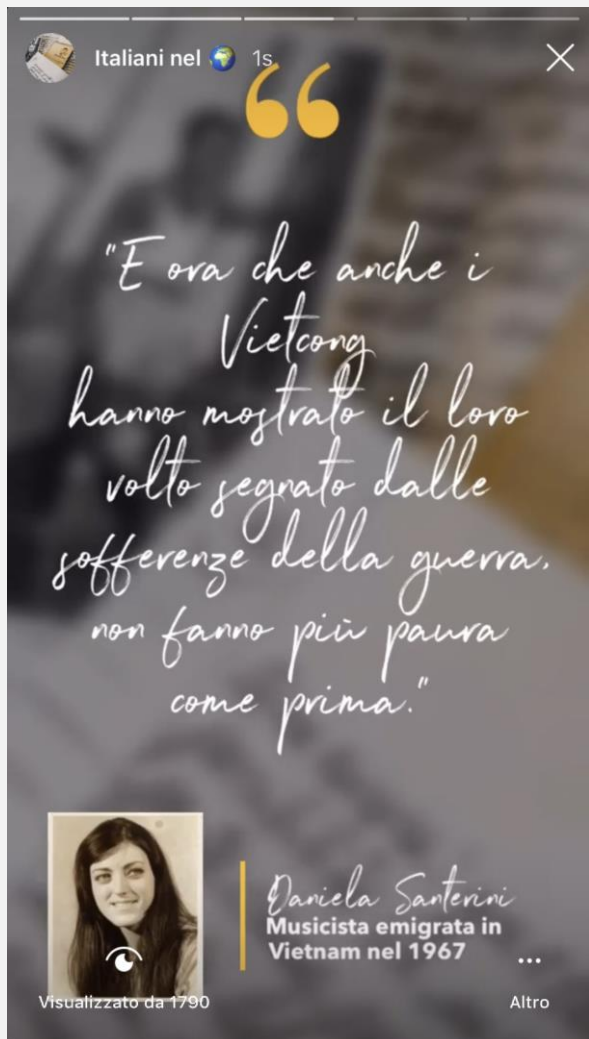 Italiani nel 🌍 1s
“
"E ora che anche i
Vietcong
hanno mostrato il loro
volto segnato dalle
sofferenze della guerra,
non fanno più paura
come prima."
Daniela Santerini
Musicista emigrata in
Vietnam nel 1967
Visualizzato da 1790
Altro